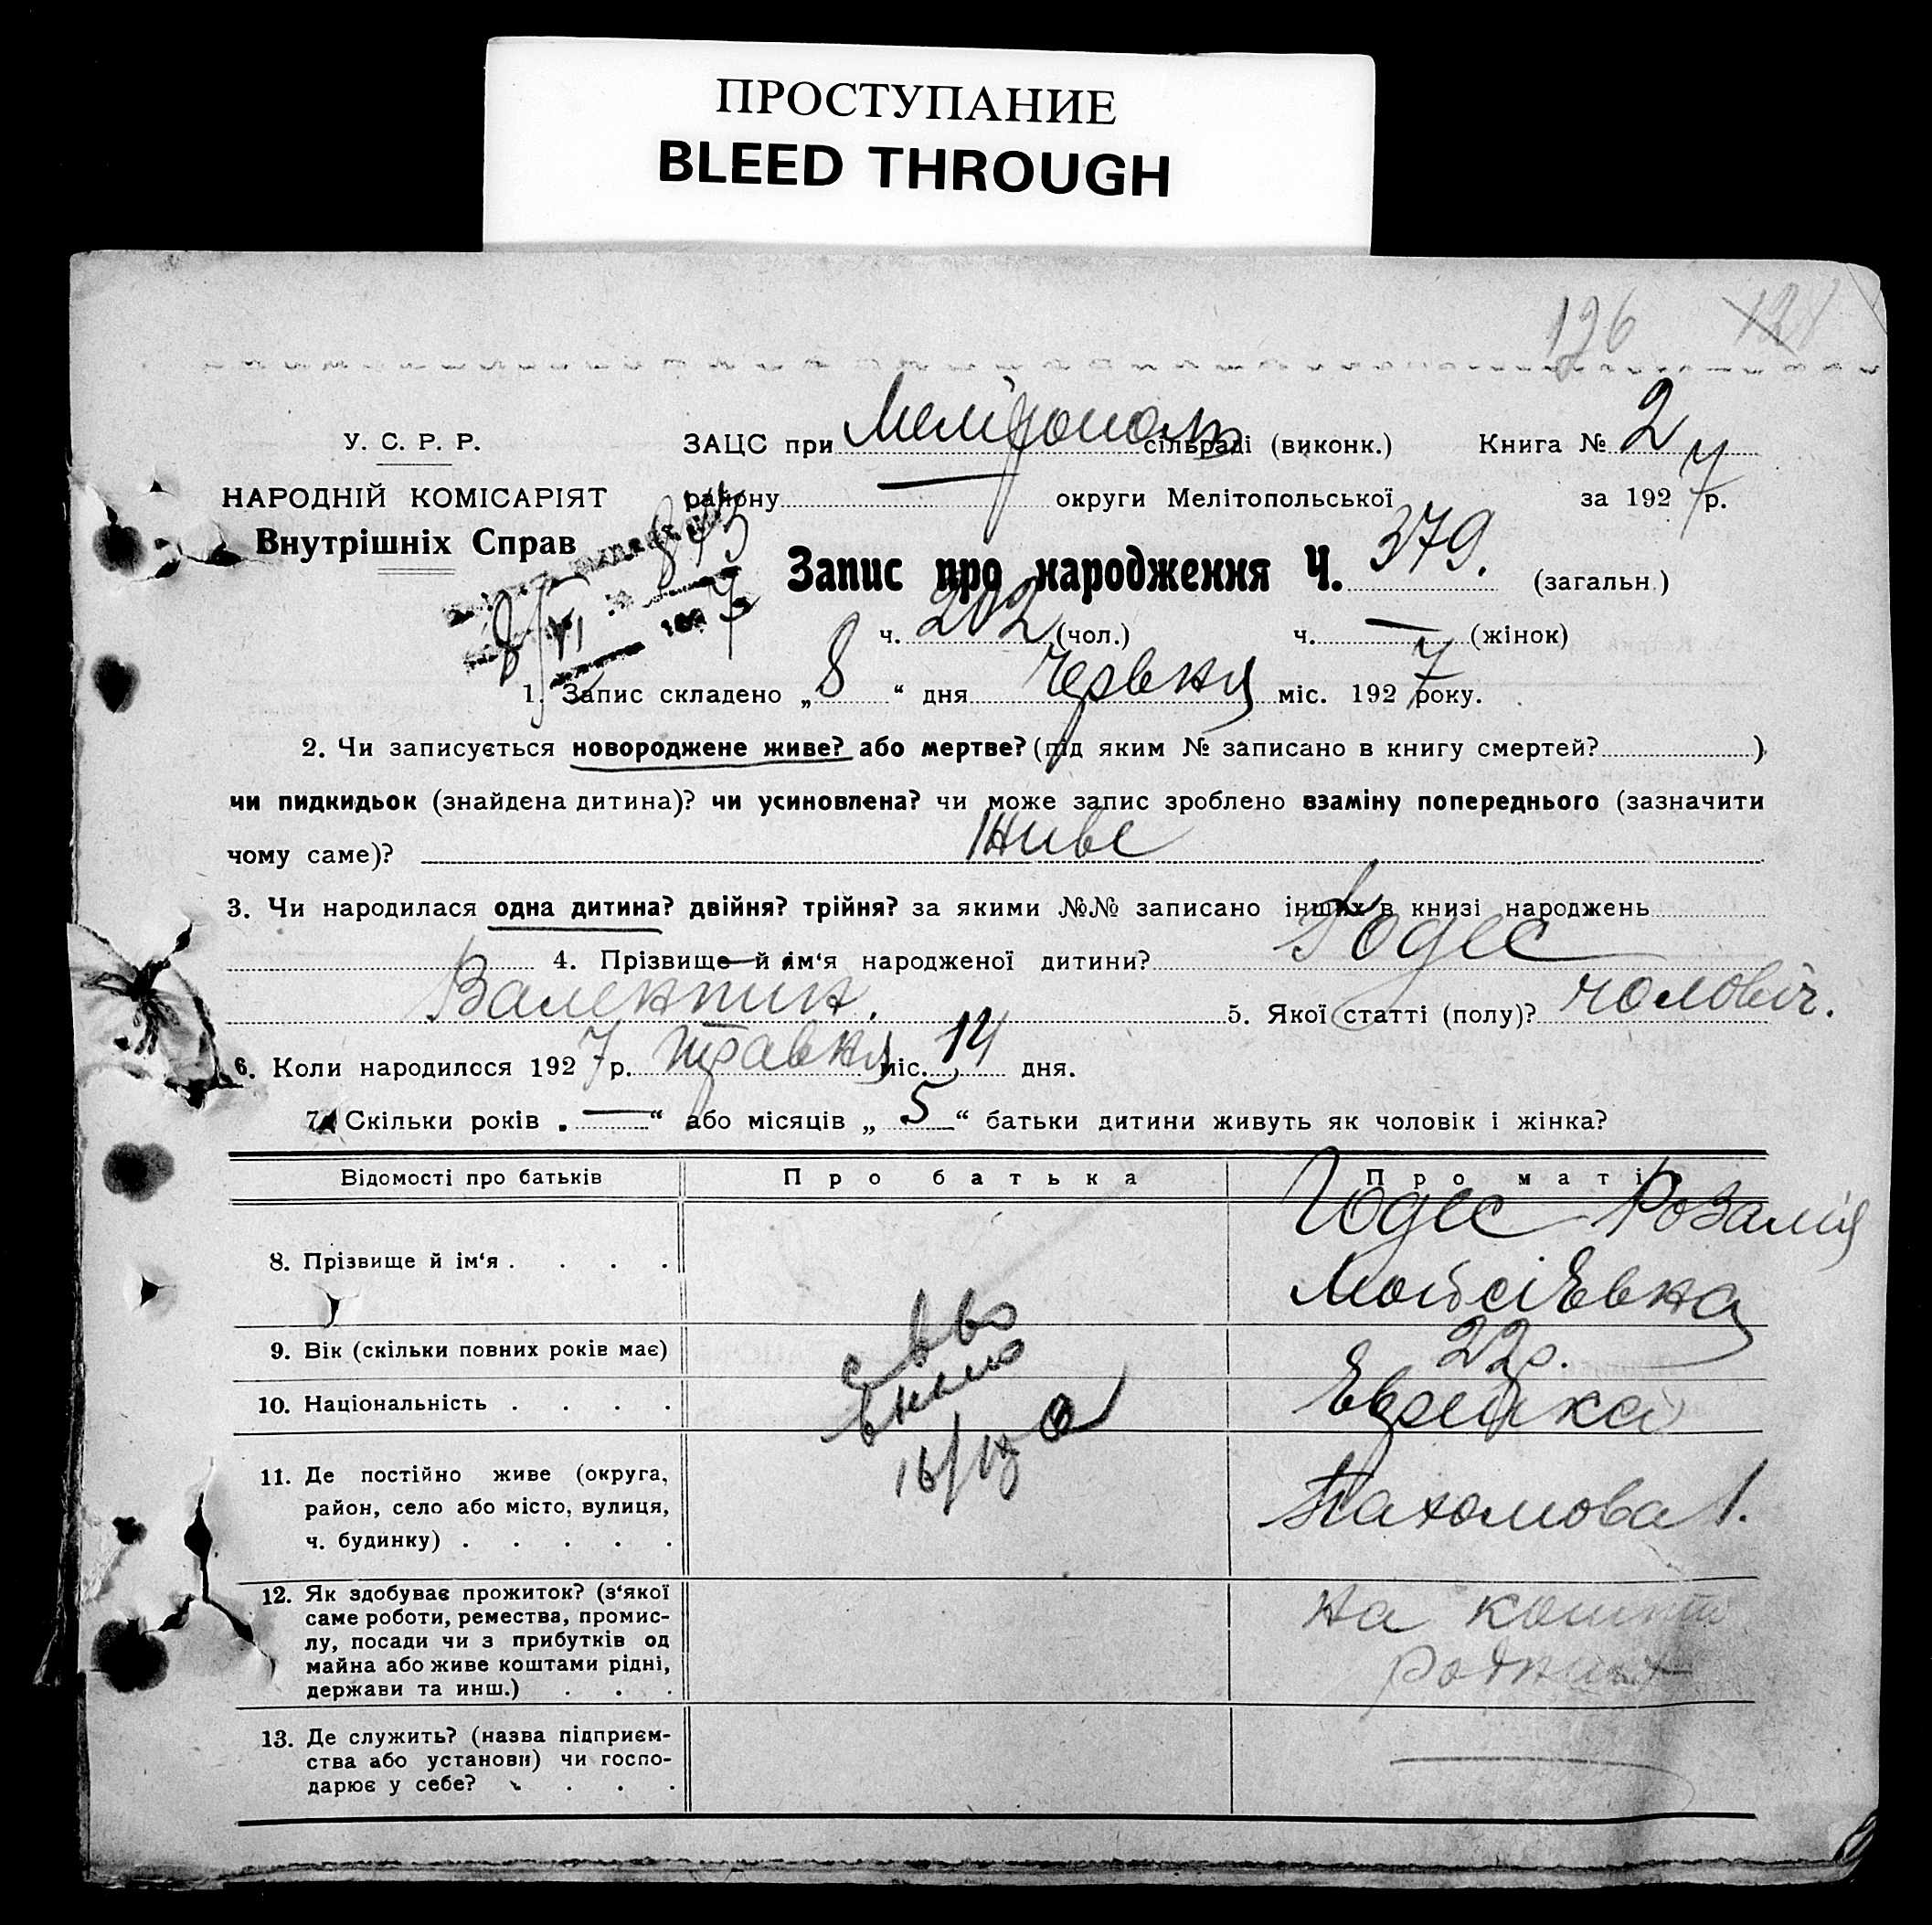 ПРОСТУПАНИЕ
BLEED THROUGH
126 121
У. С. Р. Р.
НАРОДНІЙ КОМІСАРІЯТ
Внутрішніх Справ
ЗАЦС при Мелітополь сільраді (виконк.) Книга № 2
району округи Мелітопольської за 1927 р.
Запис про народження Ч. 379. (загальн.)
ч. 202 (чол.) ч. — (жінок)
8/VI 7
1. Запис складено „8“ дня червня міс. 1927 року.
2. Чи записується новороджене живе? або мертве? (під яким № записано в книгу смертей? )
чи пидкидьок (знайдена дитина)? чи усиновлена? чи може запис зроблено взаміну попереднього (зазначити
чому саме)? Живе
3. Чи народилася одна дитина? двійня? трійня? за якими №№ записано інших в книзі народжень
4. Прізвище й ім‘я народженої дитини? Годес
Валентин. 5. Якої статті (полу)? чоловіч.
6. Коли народилося 1927 р. травня міс. 14 дня.
7. Скільки років „—“ або місяців „5“ батьки дитини живуть як чоловік і жінка?
Відомості про батьків Про батька Про матір
8. Прізвище й ім‘я . . . . Годес Розалія
Мойсіевна
9. Вік (скільки повних років має) 22 р.
10. Національність . . . . Еврейка
11. Де постійно живе (округа,
район, село або місто, вулиця,
ч. будинку) . . . . . Пахомова 1.
12. Як здобуває прожиток? (з‘якої
саме роботи, ремества, промис-
лу, посади чи з прибутків од
майна або живе коштами рідні,
держави та инш.) . . . на кошти
родних
13. Де служить? (назва підприєм-
ства або установи) чи госпо-
дарює у себе? . . . . —